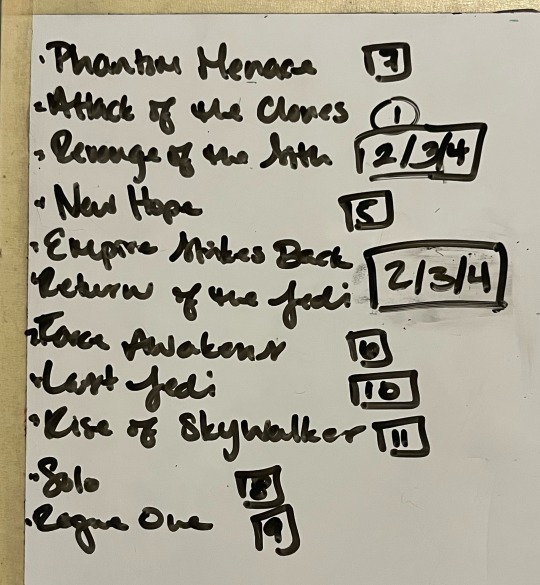 · Phantom Menace 7
· Attack of the Clones 1
· Revenge of the Sith 2/3/4
· New Hope 5
· Empire Strikes Back
· Return of the Jedi 2/3/4
· Force Awakens 6
· Last Jedi 10
· Rise of Skywalker 11
· Solo 8
· Rogue One 9